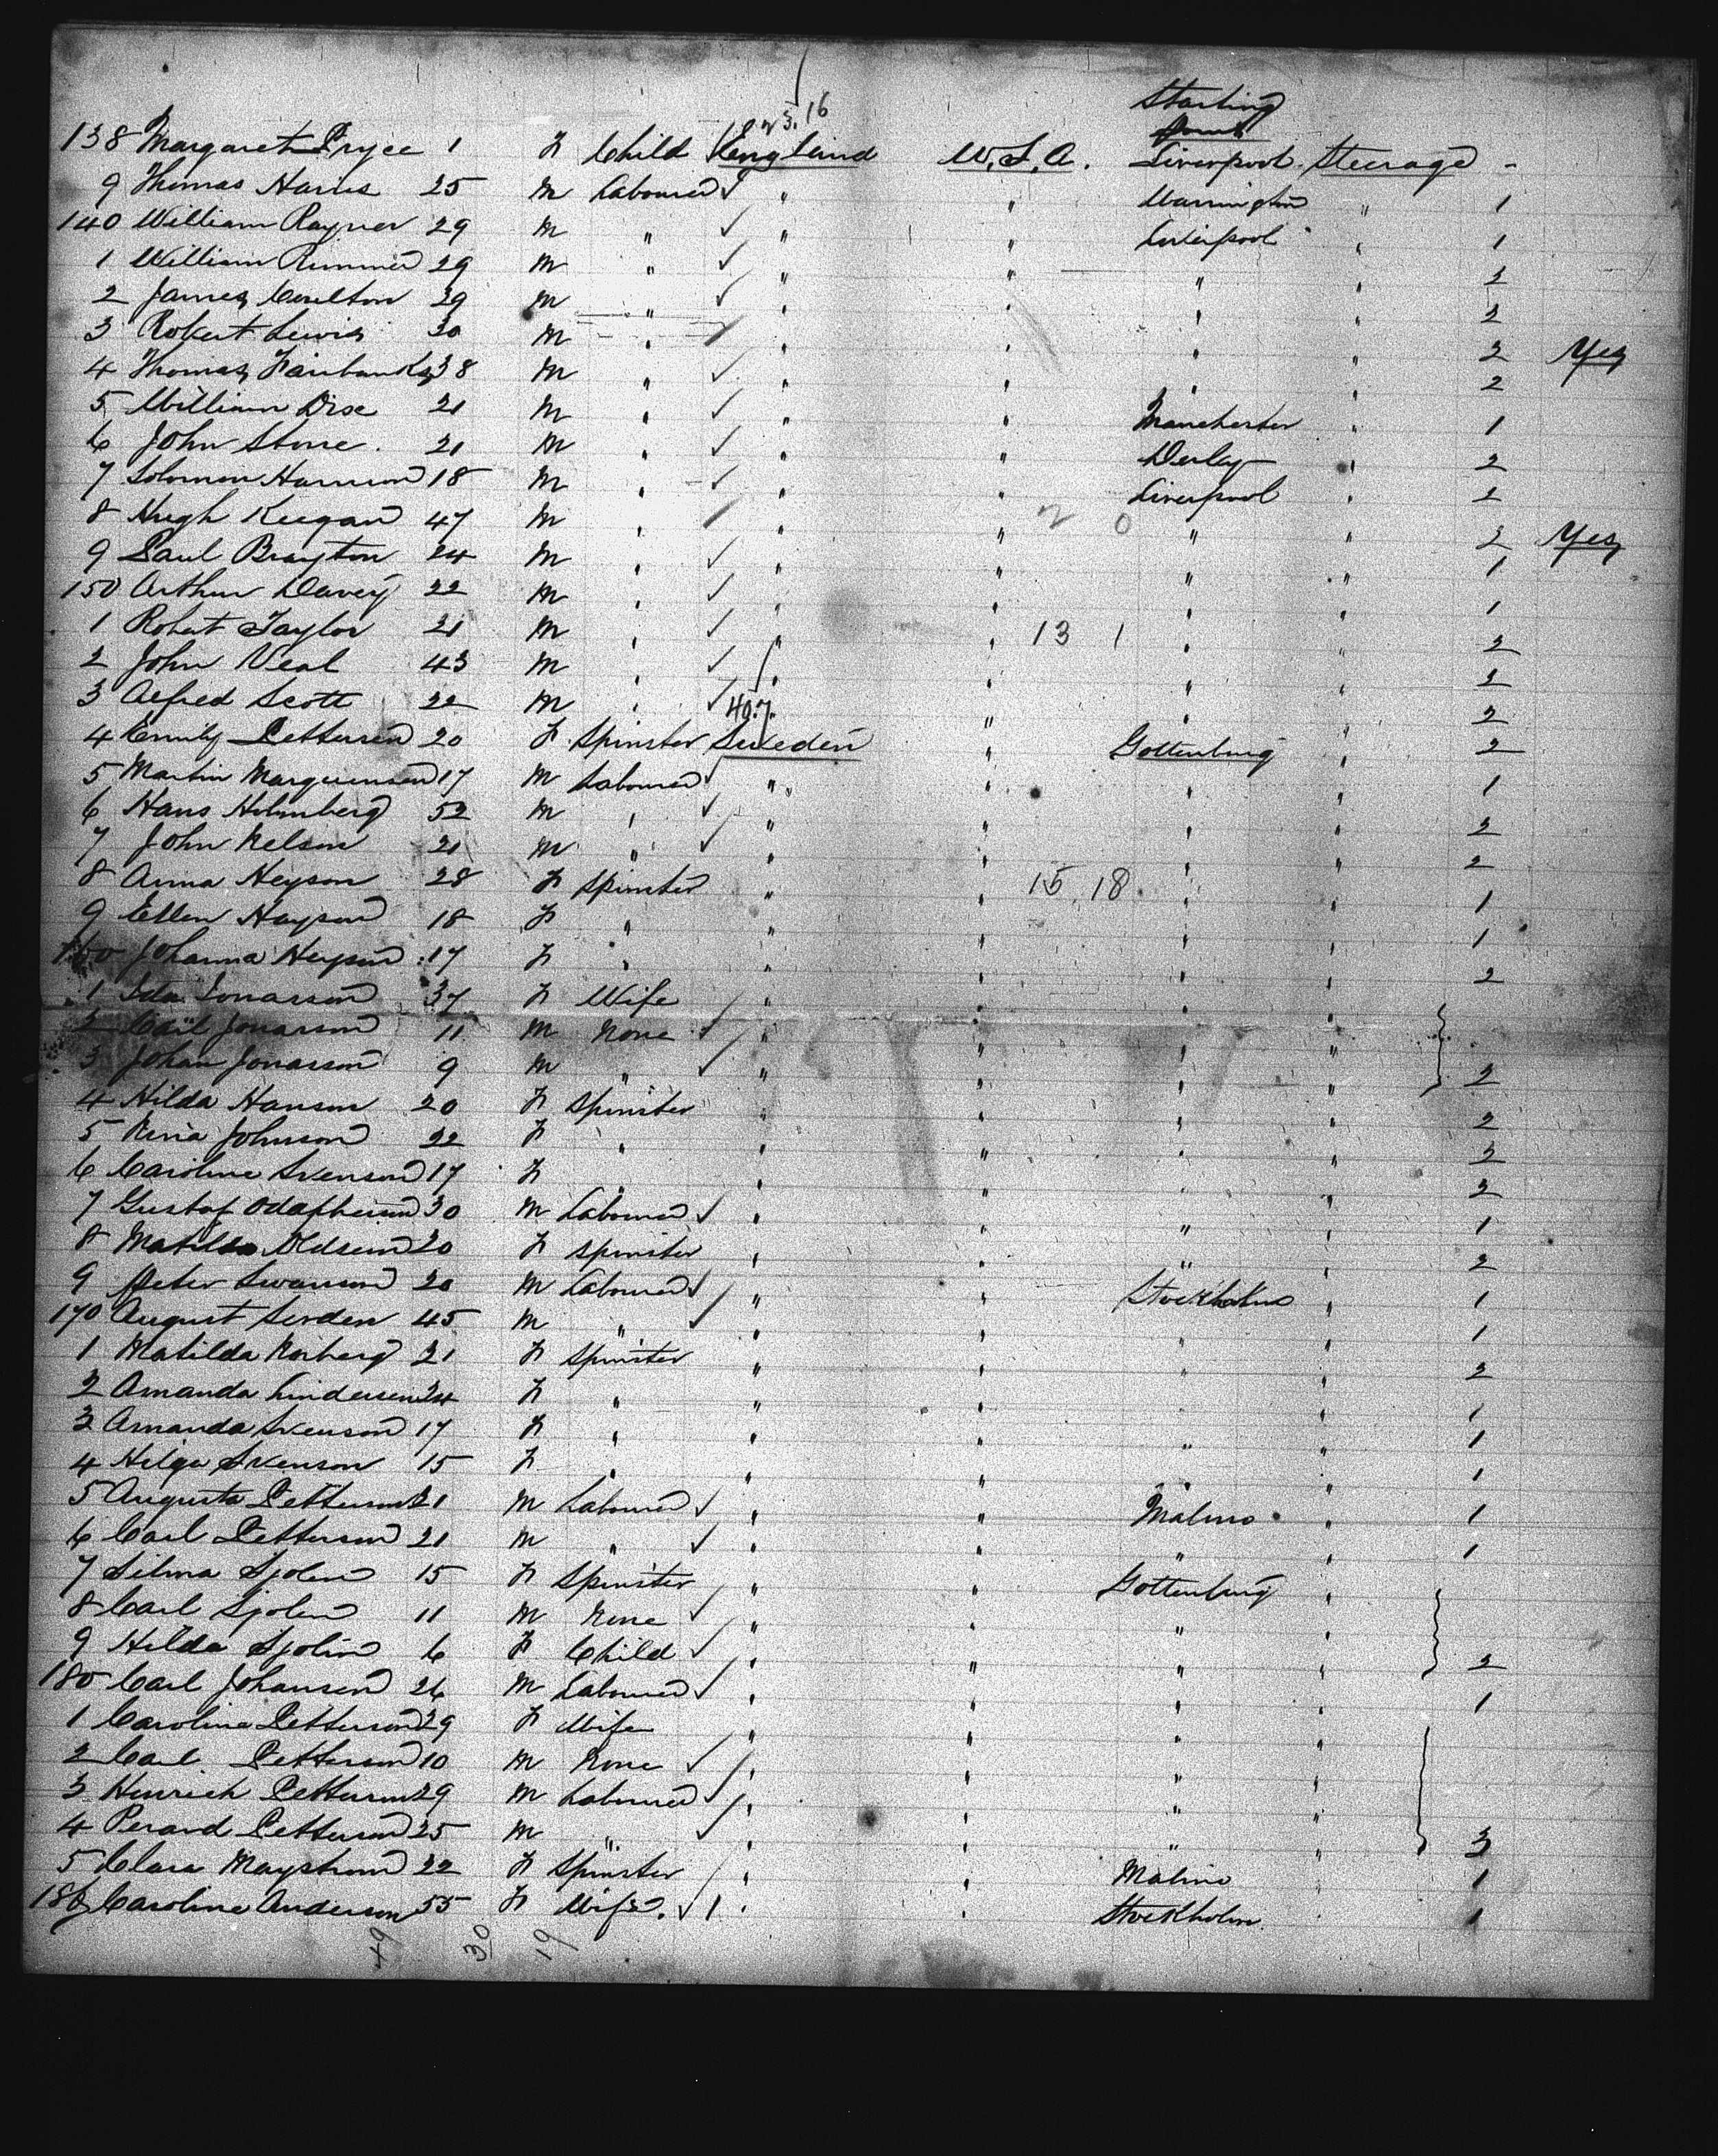 23.16
Starting
Point
138 Margaret Pryce 1 F Child England U.S.A. Liverpool Steerage -
9 Thomas Harris 25 M Labourer " " Warrington " 1
140 William Rayner 29 M " " " Liverpool " 1
1 William Rimmer 29 M " " " " " 2
2 James Coulton 29 M " " " " " 2
3 Robert Lewis 30 M " " " " " 2 Yes
4 Thomas Fairbanks 38 M " " " " " 2
5 William Dix 21 M " " " Manchester " 1
6 John Stone 21 M " " " " 2
7 Solomon Harrison 18 M " " " Liverpool " 2
8 Hugh Keegan 47 M " " " 2 0 " " 2 Yes
9 Paul Brayton 24 M " " " " " 1
150 Arthur Davey 22 M " " " " " 1
1 Robert Taylor 21 M " " " 13 1 " " 2
2 John Veal 43 M " " " " " 2
3 Alfred Scott 22 M " " " " 2
40.7.
4 Emily Pettersen 20 F Spinster Sweden " Gottenburg " 2
5 Martin 17 M Labourer " " " " 1
6 Hans Holmberg 52 M " " " " " 2
7 John Nelson 21 M " " " " " 2
8 Anna Heyson 28 F Spinster " " 15 18 " " 1
9 Ellen Heyson 18 F " " " " " 1
160 Johanna Heyson 17 F " " " " " 2
1 Ida Jonasson 37 F Wife " " " "
2 Carl Jonasson 11 M None " " " "
3 Johan Jonasson 9 M " " " " " 2
4 Hilda Hanson 20 F Spinster " " " " 2
5 Johnson 22 F " " " " " 2
6 Caroline Svenson 17 F " " " " " 2
7 Gustaf 30 M Labourer " " " " 1
8 Matilda 20 F Spinster " " " " 2
9 Peter Swanson 20 M Labourer " " Stockholm " 1
170 August Serden 45 M " " " " " 1
1 Matilda Norberg 21 F Spinster " " " " 2
2 Amanda Lindersen 24 F " " " " " 1
3 Amanda Svenson 17 F " " " " " 1
4 Helga Svenson 15 F " " " " " 1
5 Augusta Petterson 21 M Labourer " " Malmo " 1
6 Carl Petterson 21 M " " " " " 1
7 Selma Sjolin 15 F Spinster " " Gottenburg "
8 Carl Sjolin 11 M None " " " "
9 Hilda Sjolin 6 F Child " " " " 2
180 Carl Johansen 26 M Labourer " " " " 1
1 Caroline Petterson 29 F Wife " " " "
2 Carl Petterson 10 M None " " " "
3 Henrich Petterson 29 M Labourer " " " "
4 Petterson 25 M " " " " " 3
5 Clara Maystrom 22 F Spinster " " Malmo " 1
186 Caroline Anderson 55 F Wife " " Stockholm " 1
49 30 19